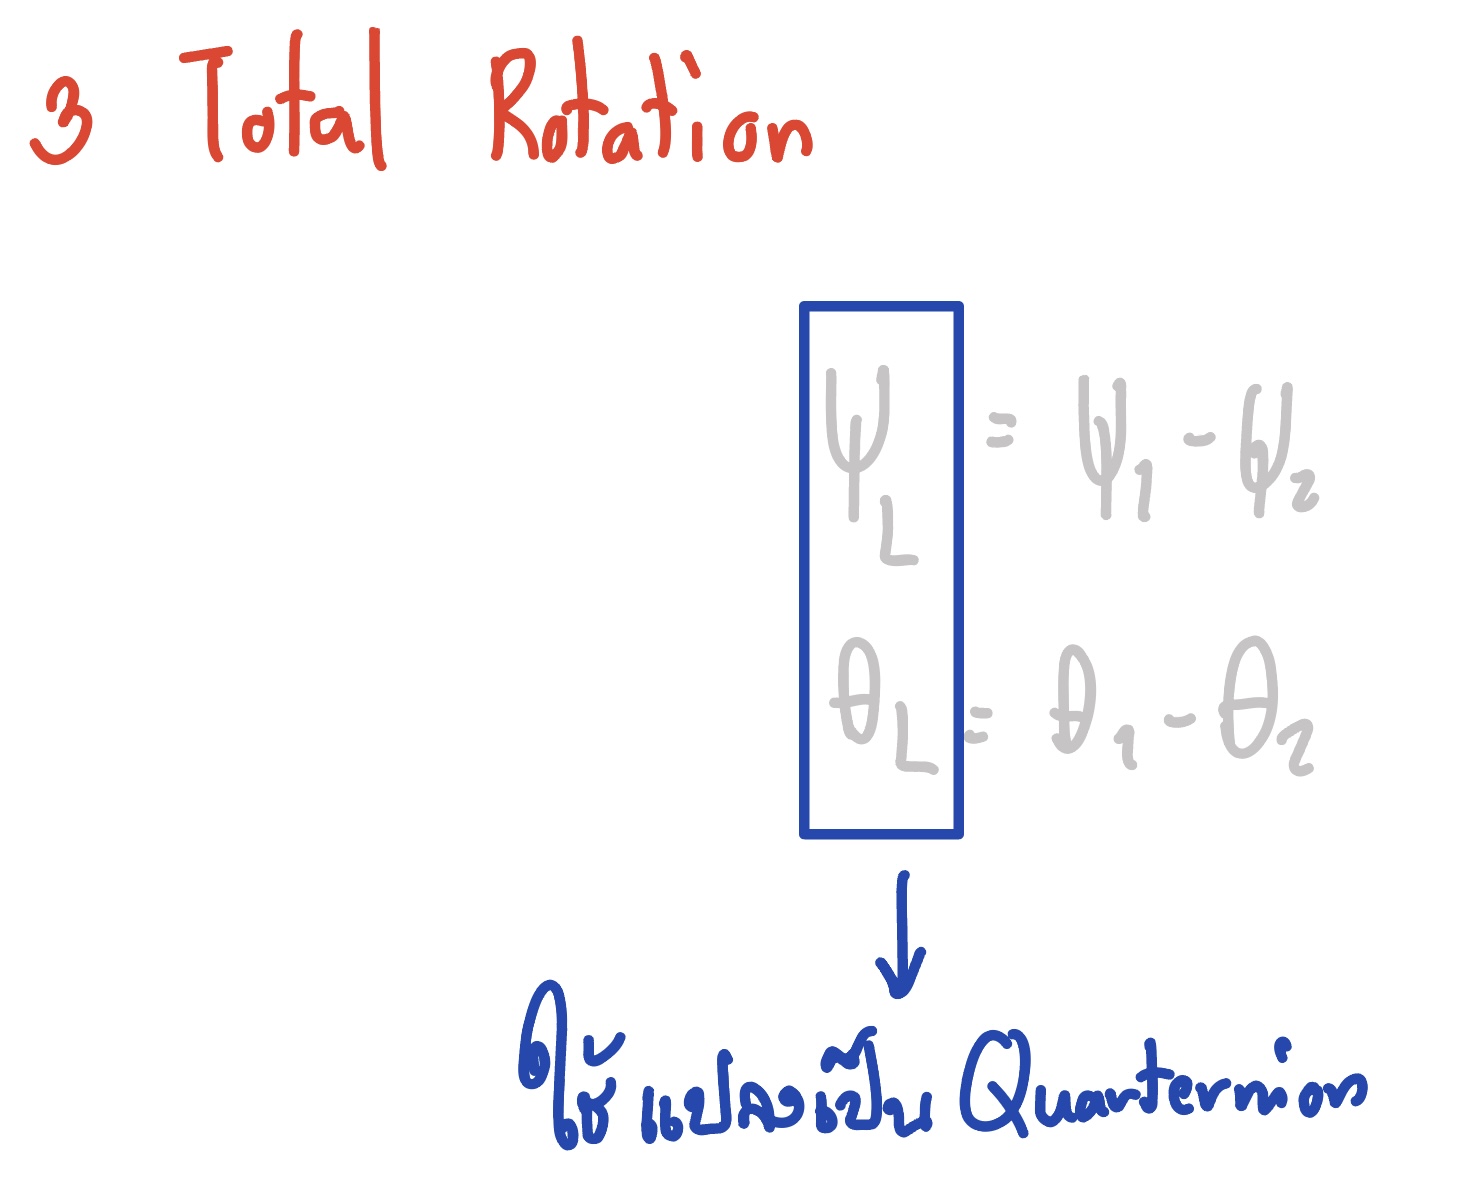 3 Total Rotation
ψ_L = ψ_1 - ψ_2
θ_L = θ_1 - θ_2
ใช้แปลงเป็น Quarternion